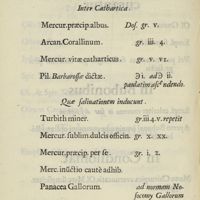 Inter Cathartica.
Mercur. præcip. albus. Dos. gr. v.
Arcan. Corallinum. gr. iii. 4.
Mercur. vitæ catharticus. gr. v. vi.
Pil. Barbarossæ dictæ. ℈i. ad ℈ ii.
paulatim ascendendo.
Quæ salivationem inducunt.
Turbith miner. gr. iii. 4. v. repetit
Mercur. sublim. dulcis officin. gr. x. xx.
Mercur. præcip. per se. gr. i. 2.
Merc. inūctio cautè adhib.
Panacea Gallorum. ad normam No-
socomy Gallorum